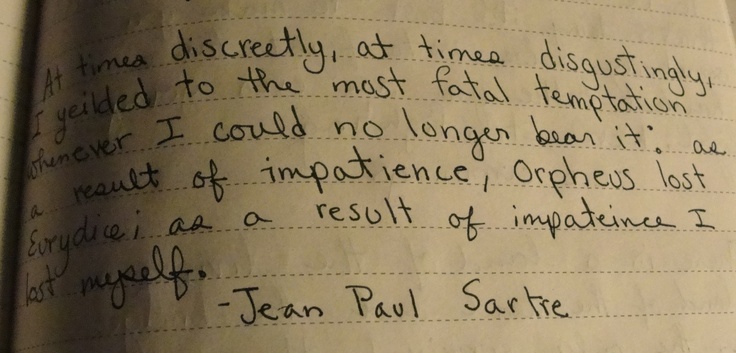 At times discreetly, at times disgustingly,
I yeilded to the most fatal temptation
whenever I could no longer bear it: as
a result of impatience, Orpheus lost
Eurydice; as a result of impateince I
lost myself.
-Jean Paul Sartre